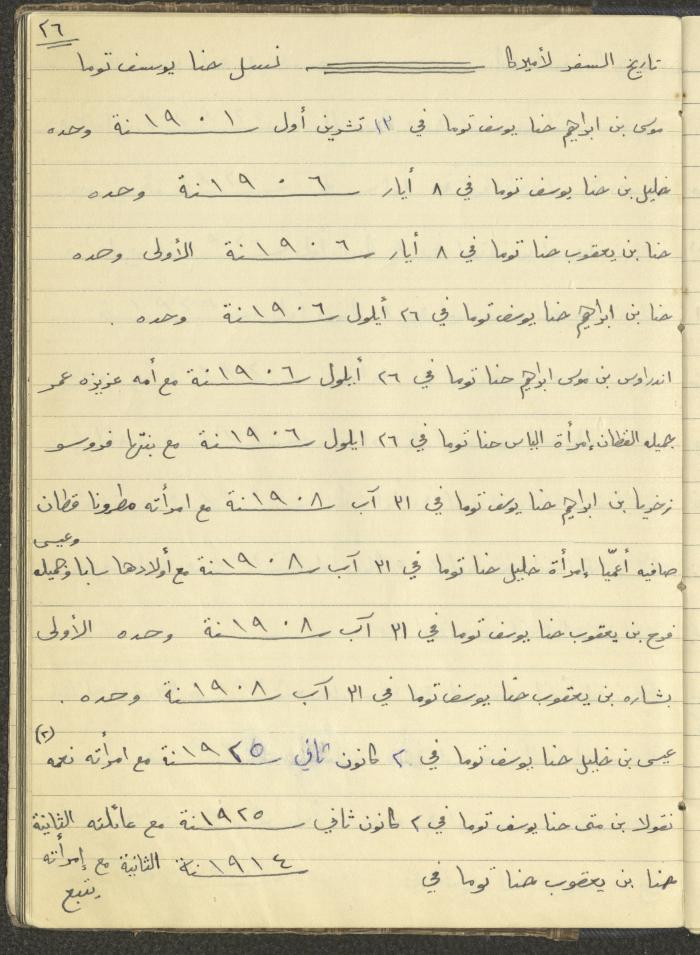 ٢٦
تاريخ السفر لأميركا نسل حنا يوسف توما
موسى بن ابراهيم حنا يوسف توما في ١٣ تشرين أول سنة ١٩٠١ وحده
خليل بن حنا يوسف توما في ٨ أيار سنة ١٩٠٦ وحده
حنا بن يعقوب حنا توما في ٨ أيار سنة ١٩٠٦ الأولى وحده
حنا بن ابراهيم حنا يوسف توما في ٢٦ أيلول سنة ١٩٠٦ وحده .
اندراوس بن موسى ابراهيم حنا توما في ٢٦ أيلول سنة ١٩٠٦ مع أمه عزيزه عمر
جميله القطان إمرأة الياس حنا توما في ٢٦ ايلول سنة ١٩٠٦ مع بنتها فروسو
زخريا بن ابراهيم حنا يوسف توما في ٣١ آب سنة ١٩٠٨ مع امرأته مطرونا قطان
صافيه أعميّا إمرأة خليل حنا توما في ٣١ آب سنة ١٩٠٨ مع أولادها سابا وجميله وعيسى
فرح بن يعقوب حنا يوسف توما في ٣١ آب سنة ١٩٠٨ وحده الأولى
بشاره بن يعقوب حنا يوسف توما في ٣١ آب سنة ١٩٠٨ وحده .
عيسى بن خليل حنا يوسف توما في ٢ كانون ثاني سنة ١٩٢٥ مع امرأته نعمه (٢)
نقولا بن متى حنا يوسف توما في ٢ كانون ثاني سنة ١٩٢٥ مع عائلته الثانية
حنا بن يعقوب حنا توما في سنة ١٩١٤ الثانية مع إمرأته
يتبع